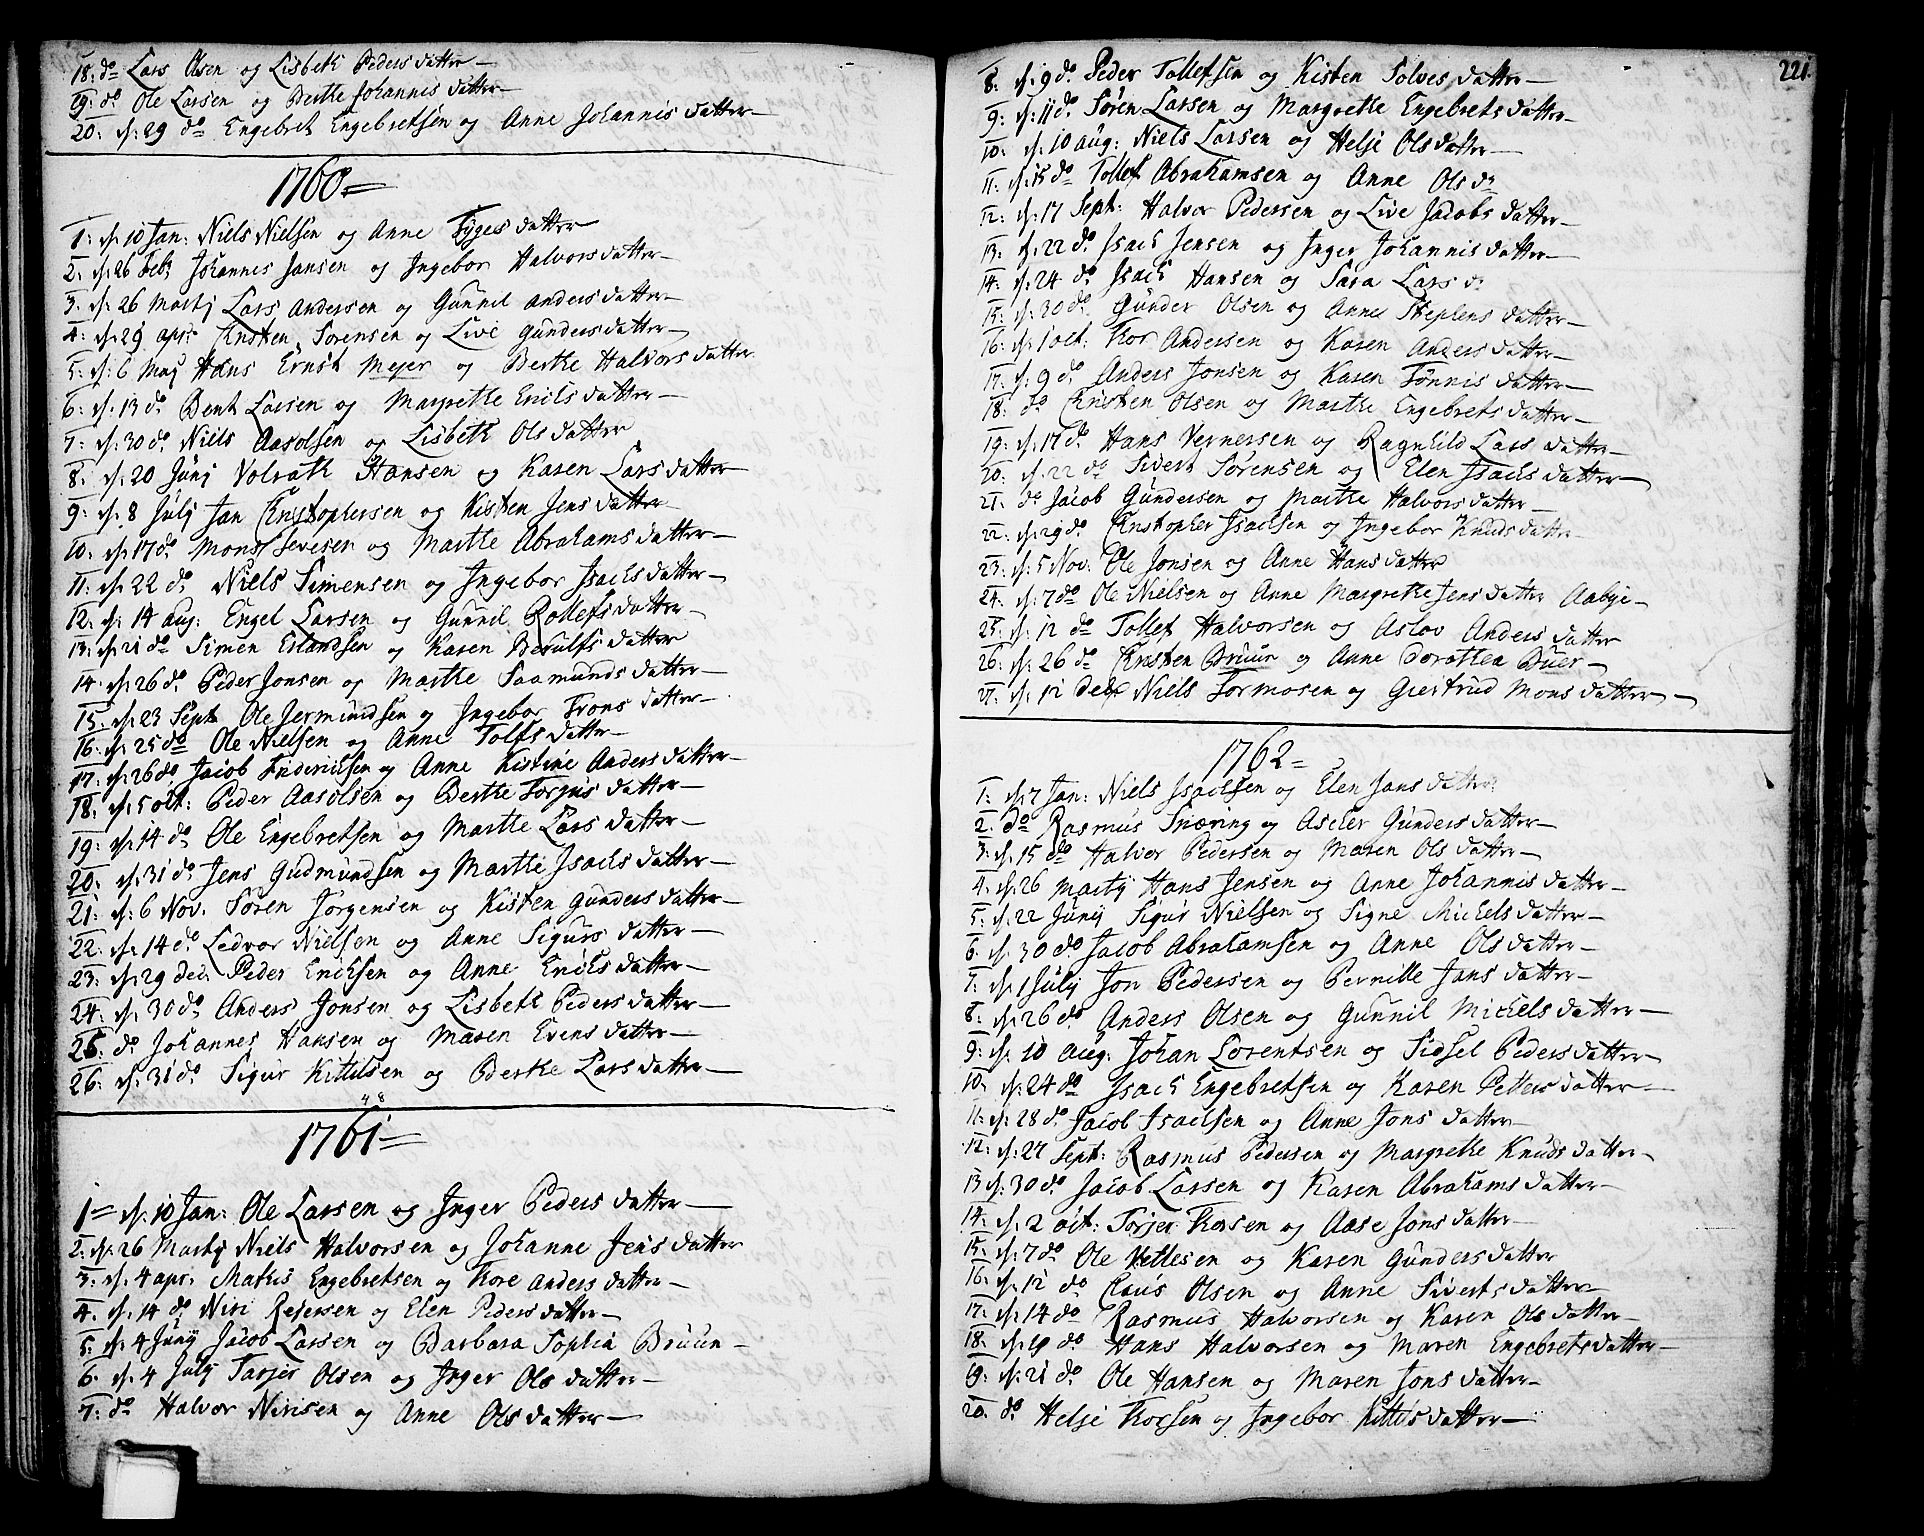 18: do Lars Olsen og Lisbeth Pedersdatter
19: do Ole Larsen og Berthe Johannisdatter
20: d. 29 do Engebret Engebretsen og Anne Johannisdatter
1760
1: d. 10 Jan: Niels Nielsen og Anne Tygesdatter
2: d. 26 Feb: Johannes Jansen og Ingebor Halvorsdatter
3: d. 26 Martj Lars Andersen og Gunnil Andersdatter
4: d. 29 apr: Christen Sørensen og Live Gundersdatter
5: d. 6 Maj Hans Ernst Mejer og Berthe Halvorsdatter
6: d. 13 do Bent Larsen og Margrethe Erichsdatter
7: d. 30 do Niels Aasolsen og Lisbeth Olsdatter
8: d. 20 Junj Volrath Hansen og Karen Larsdatter
9: d. 8 Julj Jan Christophersen og Kisten Jensdatter
10: d. 17 do Mons Sevesen og Marthe Abrahamsdatter
11: d. 22 do Niels Simensen og Ingebor Isachsdatter
12: d. 14 aug: Engel Larsen og Gunnil Rollefsdatter
13: d. 21 do Simen Erlandsen og Karen Berulfsdatter
14: d. 26 do Peder Jonsen og Marthe Saamundsdatter
15: d. 23 Sept Ole Jermundsen og Ingebor Tronsdatter
16: d. 25 do Ole Nielsen og Anne Tolfsdatter
17: d. 26 do Jacob Friderichsen og Anne Kistine Andersdatter
18: d. 5 oct: Peder Aasolsen og Berthe Torgusdatter
19: d. 14 do Ole Engebretsen og Marthe Larsdatter
20: d. 31 do Jens Gudmundsen og Marthe Isachsdatter
21: d. 6 Nov. Søren Jørgensen og Kisten Gundersdatter
22: d. 14 do Ledvor Nielsen og Anne Sigursdatter
23: d. 29 dec: Peder Erichsen og Anne Erichsdatter
24: d. 30 do Anders Jonsen og Lisbeth Pedersdatter
25: do Johannes Hansen og Maren Evensdatter
26: d. 31 do Sigur Kittilsen og Berthe Larsdatter
48
1761
1 d. 10 Jan: Ole Larsen og Inger Pedersdatter
2: d. 26 Martj Niels Halvorsen og Johanne Jensdatter
3: d. 4 apr. Mathis Engebretsen og Thore Andersdatter
4. d. 14 do Niri Reiersen og Elen Pedersdatter
5: d. 4 Junj Jacob Larsen og Barbara Sophia Bruun
6. d. 4 July Tarjer Olsen og Inger Olsdatter
7: do Halvor Nirisen og Anne Olsdatter
221.
8: d. 9 do Peder Tollefsen og Kisten Solvesdatter
9: d. 11 do Søren Larsen og Margrethe Engebretsdatter
10: d. 10 aug: Niels Larsen og Helje Olsdatter
11: d. 15 do Tollef Abrahamsen og Anne Olsdr
12: d. 17 Sept: Halvor Pedersen og Live Jacobsdatter
13: d. 22 do Isach Jensen og Inger Johannisdatter
14: d. 24 do Isach Hansen og Sara Larsdr
15: d. 30 do Gunder Olsen og Anne Stephensdatter
16: d. 1 oct: Thor Andersen og Karen Andersdatter
17: d. 9 do Anders Jonsen og Karen Tønnisdatter
18: do Christen Olsen og Marthe Engebretsdatter
19: d. 17 do Hans Vernersen og Ragnhild Larsdatter
20: d. 22 do Sivert Sørensen og Elen Isachsdatter
21: do Jacob Gundersen og Marthe Halvorsdatter
22: d. 29 do Christopher Isachsen og Ingebor Knudsdatter
23: d. 5 Nov: Ole Jonsen og Anne Hansdatter
24. d. 7 do Ole Nielsen og Anne Margrethe Jensdatter Aabye
25: d. 12 do Tollef Halvorsen og Aslov Andersdatter
26: d. 26 do Christen Bruun og Anne Dorothea Buer
27: d. 12 dec Niels Tormosen og Giertrud Monsdatter
1762
1: d. 7 Jan: Niels Isachsen og Elen Jansdatter
2: do Rasmus Snæring og Ascher Gundersdatter
3: d. 15 do Halvor Pedersen og Maren Olsdatter
4. d. 26 Martij Hans Jensen og Anne Johannisdatter
5: d. 22 Junij Sigur Nielsen og Signe Michelsdatter
6. d. 30 do Jacob Abrahamsen og Anne Olsdatter
7: d. 1 July Jon Pedersen og Pernille Jansdatter
8: d. 26 do Anders Olsen og Gunnil Michelsdatter
9: d. 10 aug: Johan Lorentsen og Sidsel Pedersdatter
10: d. 24 do Isach Engebretsen og Karen Pettersdatter
11: d. 28 do Jacob Isachsen og Anne Jonsdatter
12: d. 27 Sept: Rasmus Pedersen og Margrethe Knudsdatter
13 d. 30 do Jacob Larsen og Karen Abrahamsdatter
14: d. 2 oct: Torjer Thorsen og Aase Jonsdatter
15. d. 7 do Ole Vettlesen og Karen Gundersdatter
16: d. 12 do Claus Olsen og Anne Sivertsdatter
17: d. 14 do Rasmus Halvorsen og Karen Olsdatter
18: d. 19 do Hans Halvorsen og Maren Engebretsdatter
19: d. 21 do Ole Hansen og Maren Jonsdatter
20. do Helje Thorsen og Ingebor Kittilsdatter